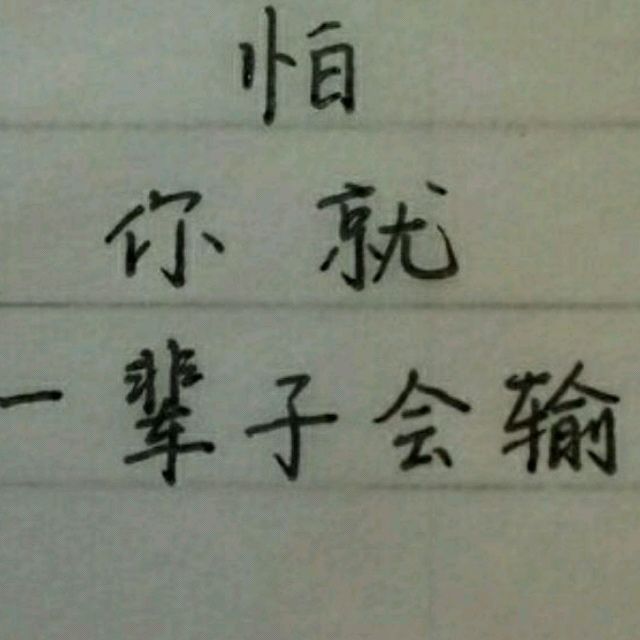 怕
你就
一辈子会输